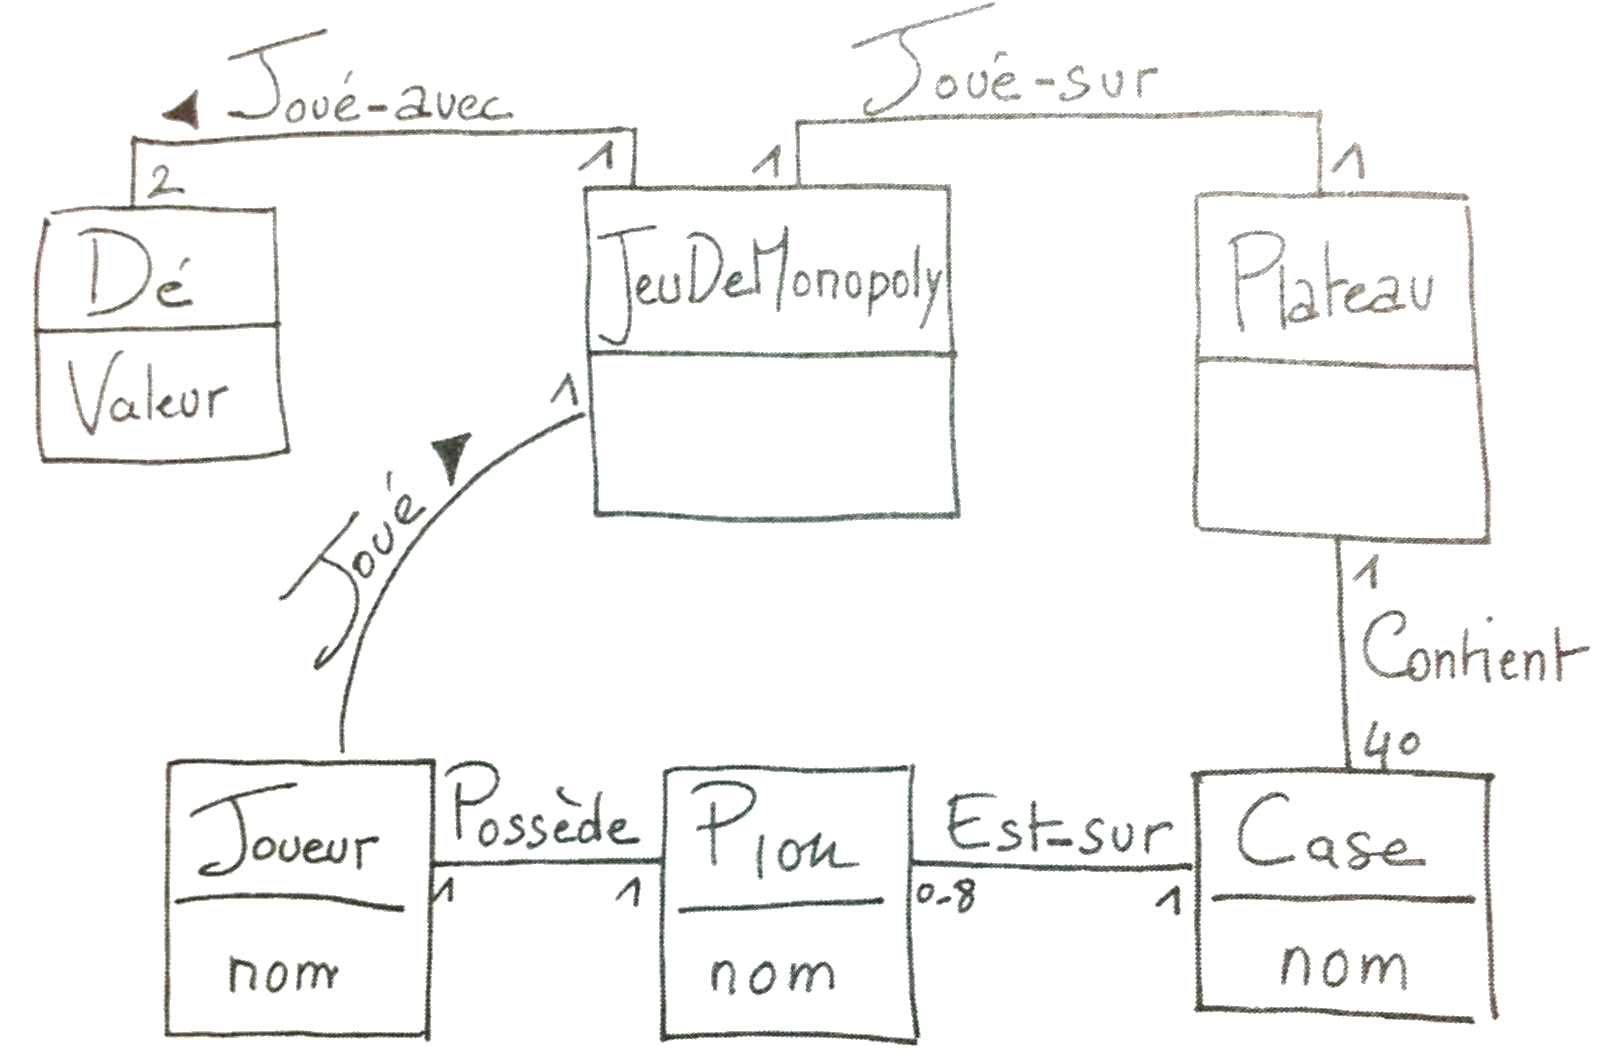 Joué-avec
Joué-sur
2
1
1
1
Dé
Valeur
JeuDeMonopoly
Plateau
1
Joué
1
Contient
40
Joueur
nom
Possède
1
1
Pion
nom
Est-sur
0..8
1
Case
nom